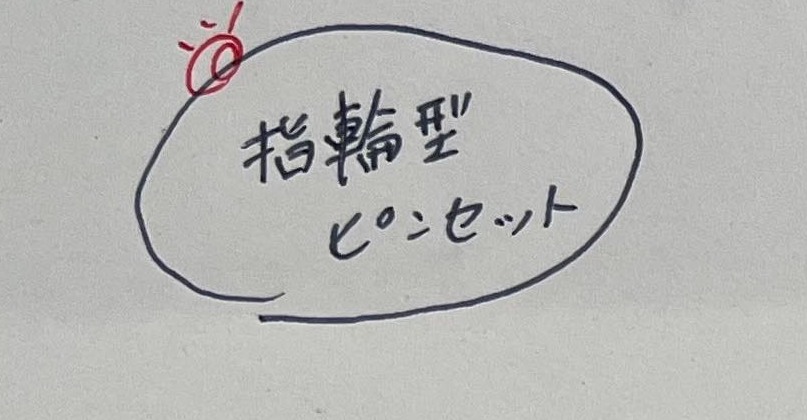 指輪型
ピンセット